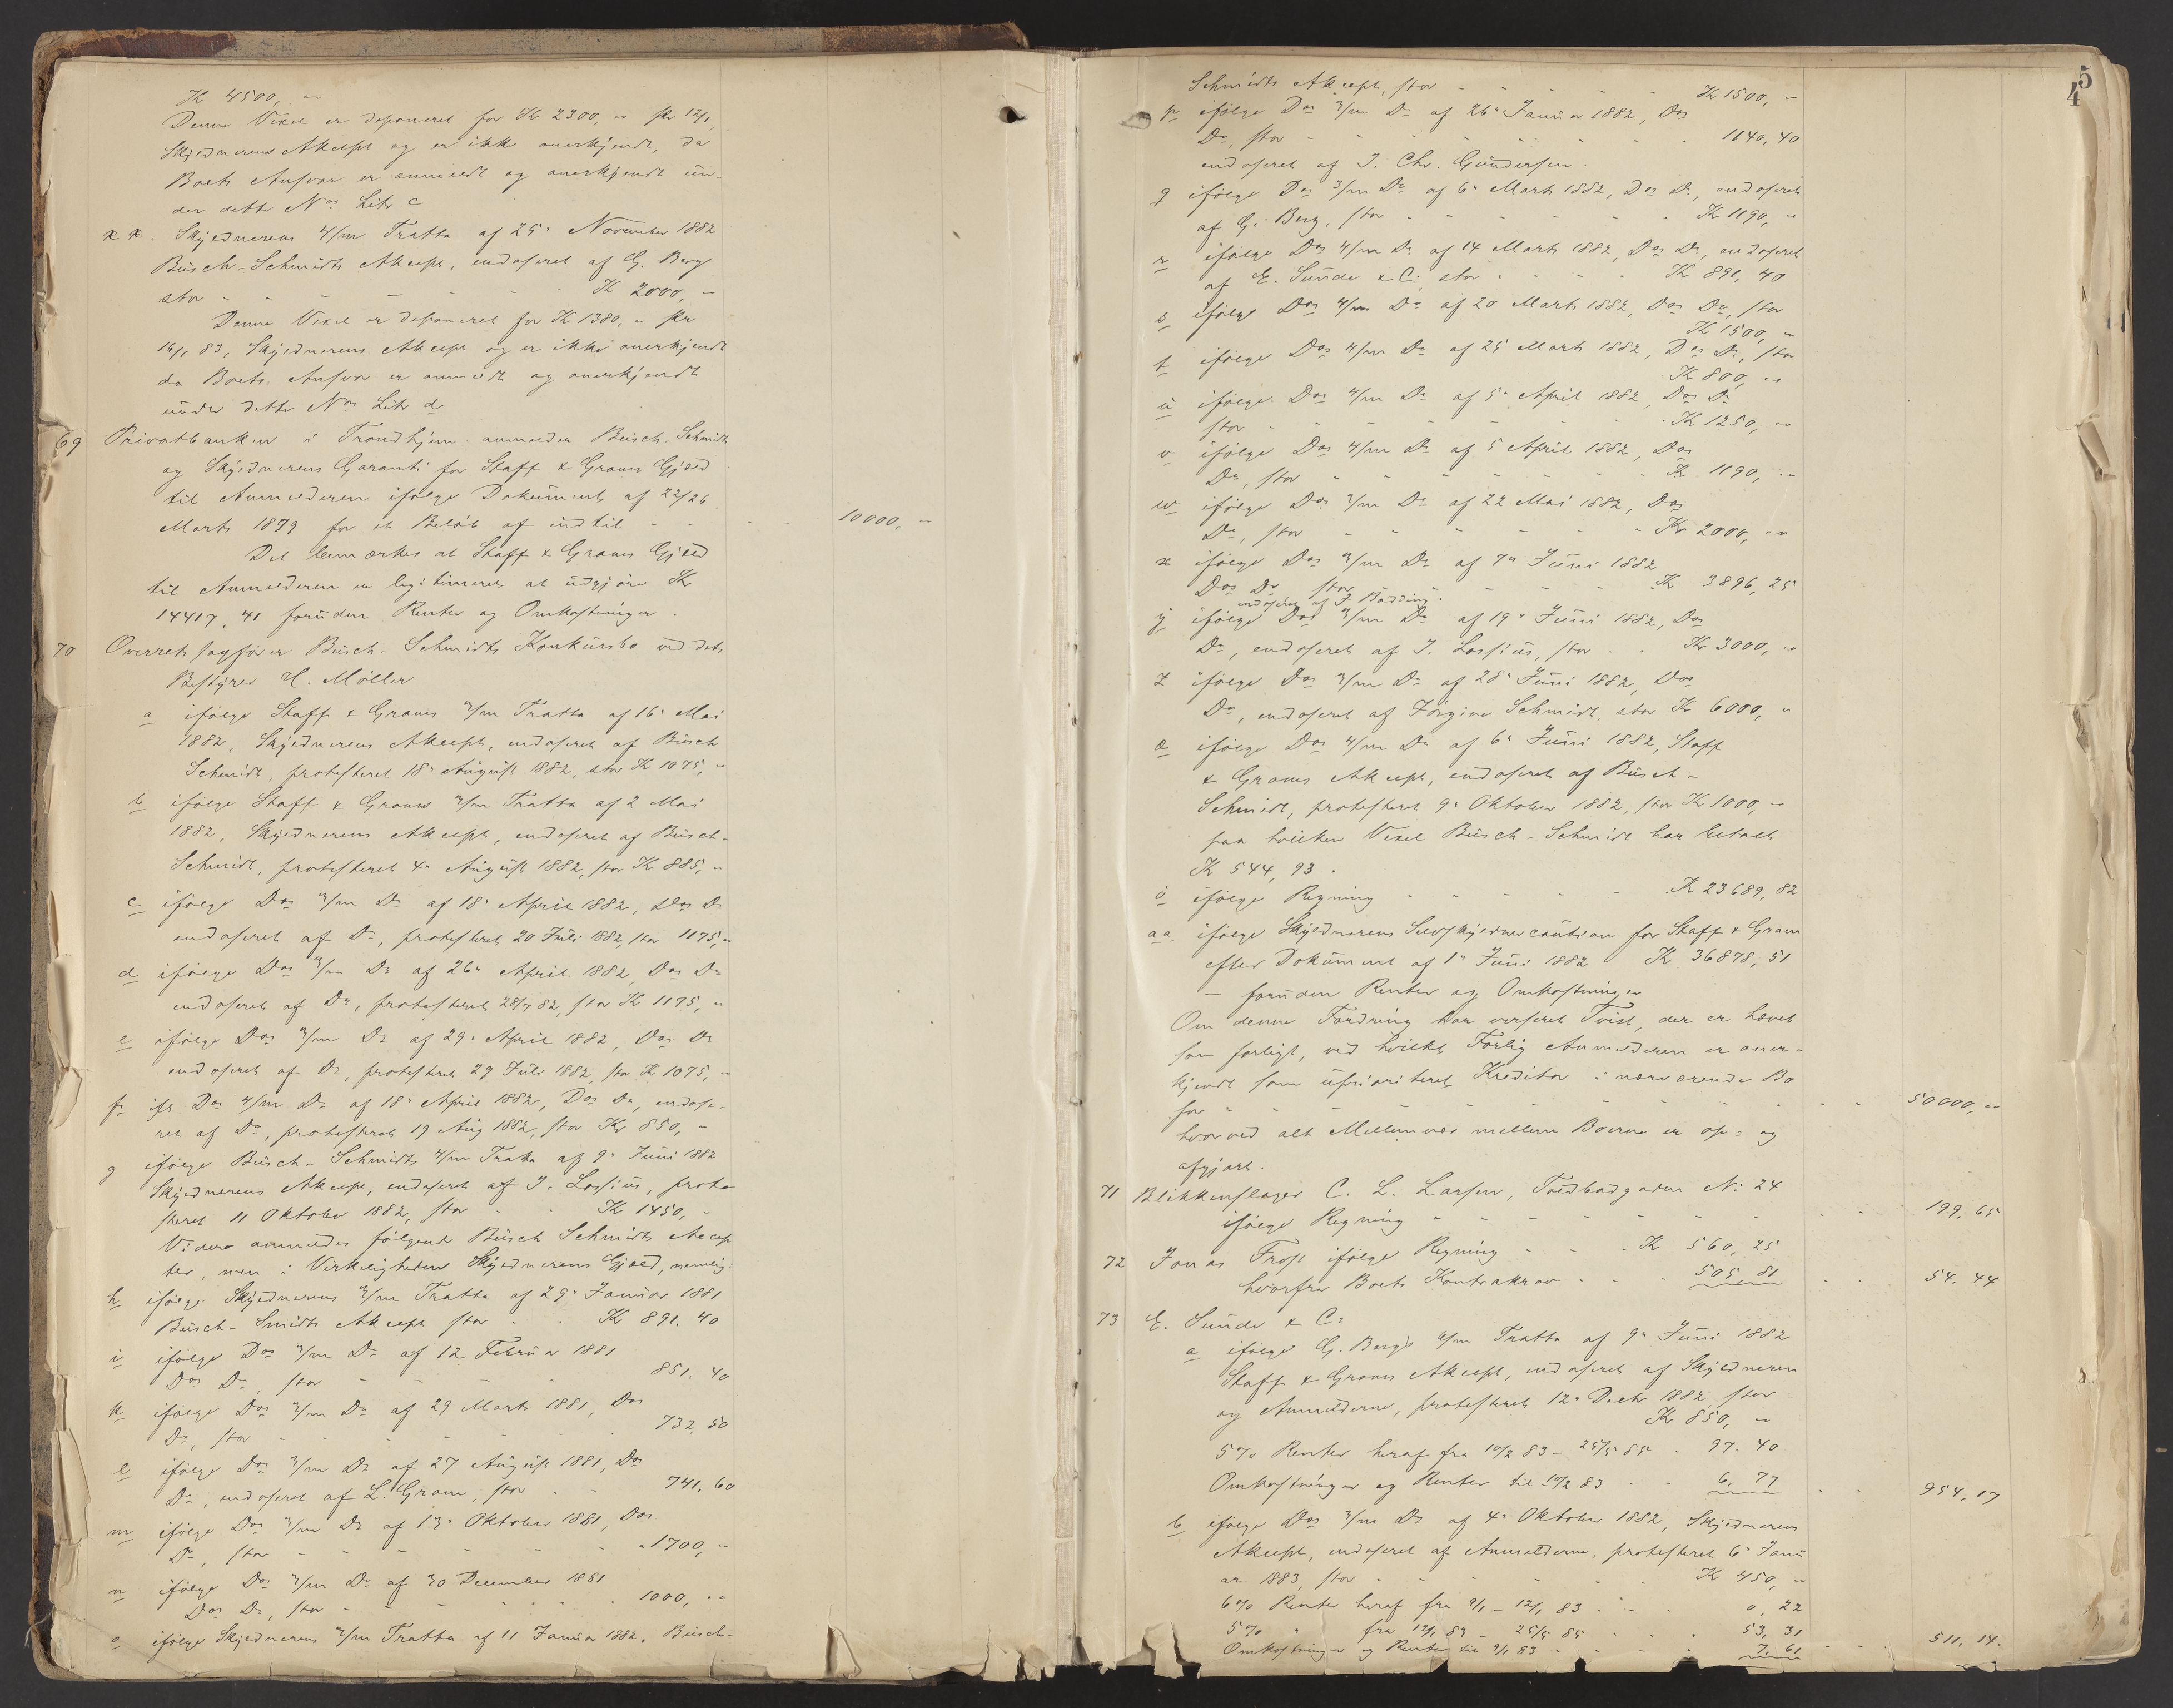 K 4500, "
Denne Vexel er deponeret for K 2300, " pr 12/1,
Skyldnerens Akcept og er ikke anerkjendt, da
Boets Ansvar er anmeldt og anerkjendt un-
der dette Nos Litr c
xx. Skyldnerens 4/m Tratta af 25. November 1882
Busch-Schmidts Akcept, endoseret af G. Berg
stor - - - - - K 2000, -
Denne Vexel er deponeret for K 1380, - pr
16/1 83, Skyldnerens Akcept og er ikke anerkjendt
da Boets Ansvar er anmeldt og anerkjendt
under dette Nos Litr d
69 Privatbanken i Trondhjem anmelder Busch-Schmidts
og Skyldnerens Garanti for Staff & Grams Gjæld
til Anmelderen ifølge Dokument af 22/26
Marts 1879 for et Beløb af indtil - - - - 10000, "
Det bemærkes at Staff & Grams Gjæld
til Anmelderen er legitimeret at udgjøre K
14417, 41 foruden Renter og Omkostninger.
70 Overretssagfører Busch-Schmidts Konkursbo ved dets
Bestyrer H. Møller
a ifølge Staff & Grams 3/m Tratta af 16. Mai
1882, Skyldnerens Akcept, endoseret af Busch
Schmidt, protesteret 18. August 1882, stor K 1075, "
b ifølge Staff & Grams 3/m Tratta af 2 Mai
1882, Skyldnerens Akcept, endoseret af Busch-
Schmidt, protesteret 4. August 1882, stor K 885, "
c ifølge Dos 3/m Do af 18. April 1882, Dos Do
endoseret af Do, protesteret 20 Juli 1882, stor 1175, "
d ifølge Dos 3/m Do af 26. April 1882, Dos Do
endoseret af Do, protesteret 28/7 82, stor K 1175, "
e ifølge Dos 3/m Do af 29. April 1882, Dos Do
endoseret af Do, protesteret 29 Juli 1882, stor K 1075, "
f if. Dos 4/m Do af 18. April 1882, Dos Do, endose-
ret af Do, protesteret 19 Aug 1882, stor Kr 850, "
g ifølge Busch-Schmidts 4/m Tratta af 9. Juni 1882
Skyldnerens Akcept, endoseret af J. Lossius, prote
steret 11 Oktober 1882, stor - - K 1450, -
Videre anmeldes følgende Busch Schmidts Accep
ter, men i Virkeligheden Skyldnerens Gjæld, nemlig:
h ifølge Skyldnerens 3/m Tratta af 29. Januar 1881
Busch-Smidts Akcept stor - - Kr 891. 40
i ifølge Dos 3/m Do af 12 Februar 1881
Dos Do, stor - - - - 851. 40
k ifølge Dos 3/m Do af 29 Marts 1881, Dos
Do, stor - - - - - 732, 50
l ifølge Dos 3/m Do af 27 August 1881, Dos
Do, endoseret af L. Gram, stor - - 741. 60
m ifølge Dos 3/m Do af 13. Oktober 1881, Dos
Do, stor - - - - - - 1700, "
n ifølge Dos 3/m Do af 30 December 1881
Dos Do, stor - - - - - 1000, "
o ifølge Skyldnerens 3/m Tratta af 11 Januar 1882, Busch-
5
4
Schmidts Akcept, stor - - - - - K 1500, "
p ifølge Dos 3/m Do af 26. Januar 1882, Dos
Do, stor - - - - - - 1140, 40
endoseret af J. Chr. Gundersen.
q ifølge Dos 3/m Do af 6. Marts 1882, Dos Do, endoseret
af G. Berg, stor - - - - - K 1190, "
r ifølge Dos 4/m Do af 14 Marts 1882, Dos Do, endoseret
af E. Sunde & Co, stor - - - - K 891, 40
s ifølge Dos 4/m Do af 20 Marts 1882, Dos Do, stor
K 1500, "
t ifølge Dos 4/m Do af 25 Marts 1882, Dos Do, stor
K 800, "
u ifølge Dos 4/m Do af 5. April 1882, Dos Do
stor - - - - - - K 1250, "
v ifølge Dos 4/m Do af 5 April 1882, Dos
Do, stor - - - - - - K 1190, "
w ifølge Dos 3/m Do af 22 Mai 1882, Dos
Do, stor - - - - - - Kr 2000, "
x ifølge Dos 3/m Do af 7. Juni 1882
Dos Do stor - - - - K 3896, 25
endoseret af F. Bødding.
y ifølge Dos 3/m Do af 19. Juni 1882, Dos
Do, endoseret af J. Lossius, stor - - Kr 3000, "
z ifølge Dos 3/m Do af 28. Juni 1882, Dos
Do, endoseret af Jørgine Schmidt, stor Kr 6000, "
æ ifølge Dos 4/m Do af 6. Juni 1882, Staff
& Grams Akcept, endoseret af Busch-
Schmidt, protesteret 9. Oktober 1882, stor K 1000, "
paa hvilken Vexel Busch-Schmidt har betalt
K 544, 93.
ø ifølge Regning - - - - - K 23689, 82
aa ifølge Skyldnerens Selvskyldnercaution for Staff & Gram
efter Dokument af 1. Juni 1882 K 36878, 51
- foruden Renter og Omkostninger
Om denne Fordring har verseret Tvist, der er hævet
som forligt, ved hvilket Forlig Anmelderen er aner-
kjendt som uprioriteret Kreditor i nærværende Bo
for - - - - - - - - - - 50000, "
hvorved alt Mellemvær mellem Boerne er op- og
afgjort.
71 Blikkenslager C. L. Larsen, Toldbodgaden No 24
ifølge Regning - - - - - - - - 199. 65
72 Jonas Frost ifølge Regning - - - K 560, 25
hvorfra Boets Kontrakrav - - - 505, 81 - - 54. 44
73 E. Sunde & Co
a ifølge G. Bergs 6/m Tratta af 9. Juni 1882
Staff & Grams Akcept, endoseret af Skyldneren
og Anmelderne, protesteret 12. Decbr 1882, stor
Kr 850, "
5 % Renter heraf fra 10/2 83 - 25/5 85 - 97. 40
Omkostninger og Renter til 10/2 83 - - 6. 77 - - 954. 17
b ifølge Dos 3/m Do af 4. Oktober 1882, Skyldnerens
Akcept, endoseret af Anmelderne, protesteret 6. Janu
ar 1883, stor - - - - - K 450, -
6 % Renter heraf fra 9/1 - 12/1 83 - - - 0, 22
5 % " fra 12/1 83 - 25/5 85 - - - 53, 31
Omkostninger og Renter til 9/1 83 - - - 7. 61 - - 511. 14.